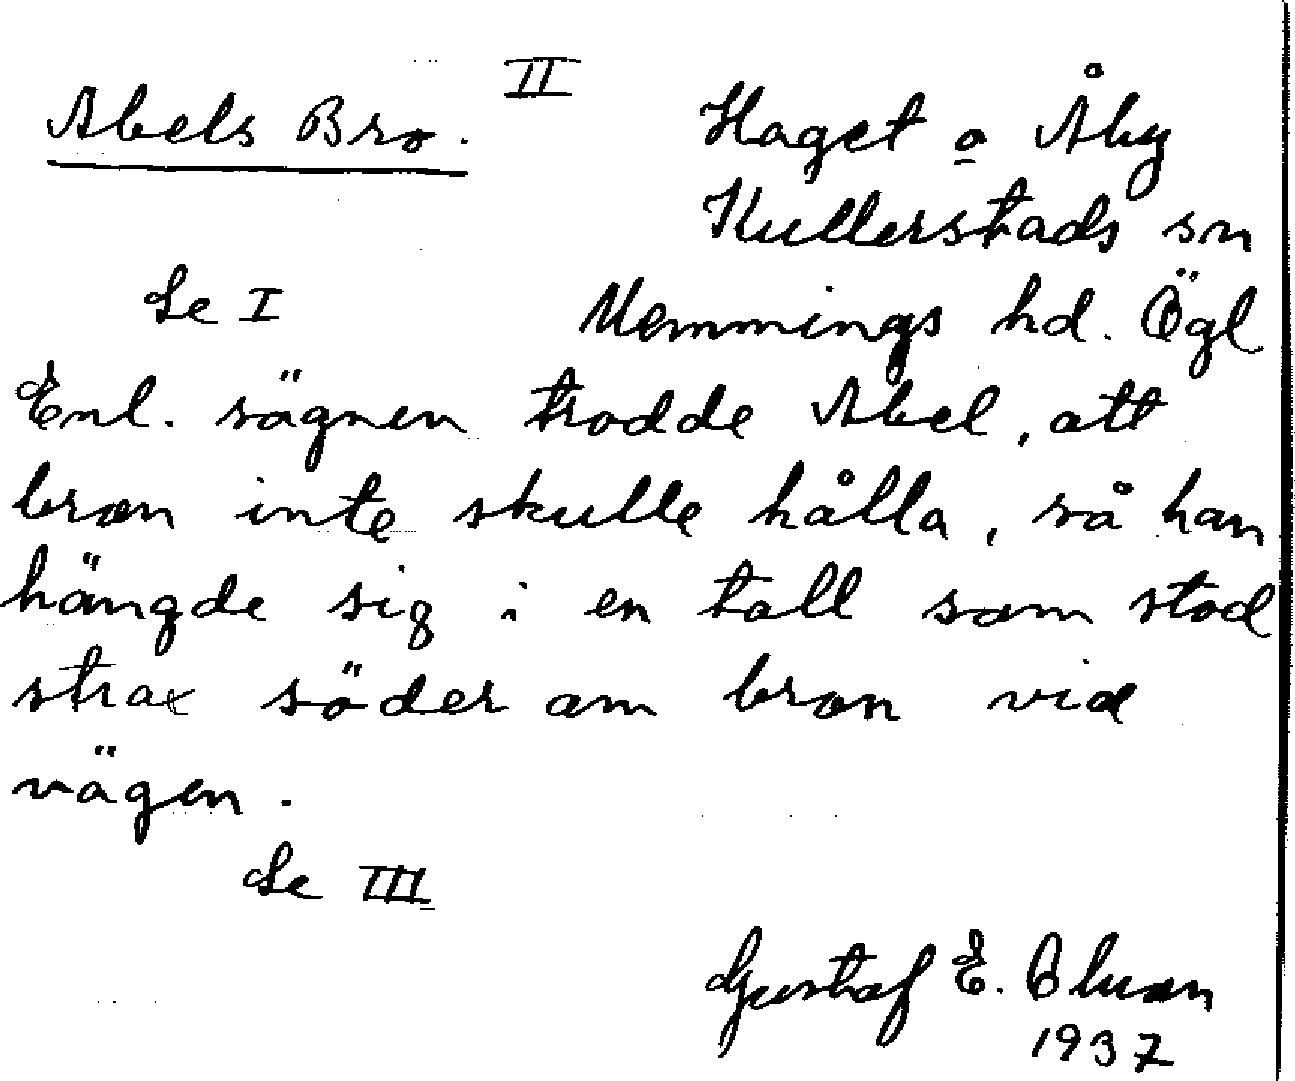 II
Abels Bro. Haget o Åby
Kullerstads sn
Se I Memmings hd. Ögl
Enl. sägnen trodde Abel, att
bron inte skulle hålla, så han
hängde sig i en tall som stod
strax söder om bron vid
vägen.
Se III
Gustaf E.
1937